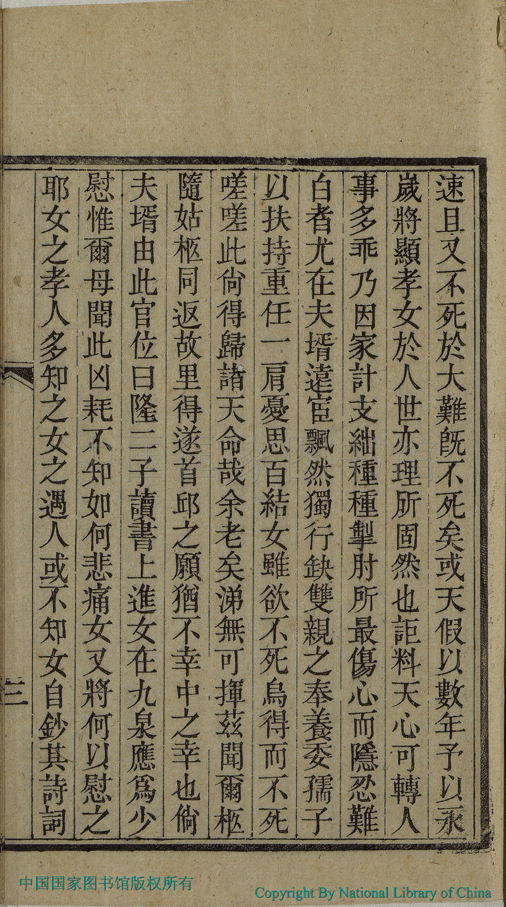 速且又不死於大難既不死矣或天假以數年予以永
歲將顯孝女於人世亦理所固然也詎料天心可轉人
事多乖乃因家計支絀種種掣肘所最傷心而隱忍難
白者尤在夫壻遠宦飄然獨行缺雙親之奉養委孺子
以扶持重任一肩憂思百結女雖欲不死烏得而不死
嗟嗟此尙得歸諸天命哉余老矣涕無可揮茲聞爾柩
隨姑柩同返故里得遂首邱之願猶不幸中之幸也倘
夫壻由此官位日隆二子讀書上進女在九泉應爲少
慰惟爾母聞此凶耗不知如何悲痛女又將何以慰之
耶女之孝人多知之女之遇人或不知女自鈔其詩詞
三
中国国家图书馆版权所有
Copyright By National Library of China